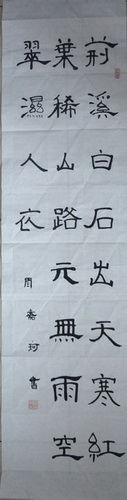 荊溪白石出天寒紅
葉稀山路元無雨空
翠濕人衣
周珂書